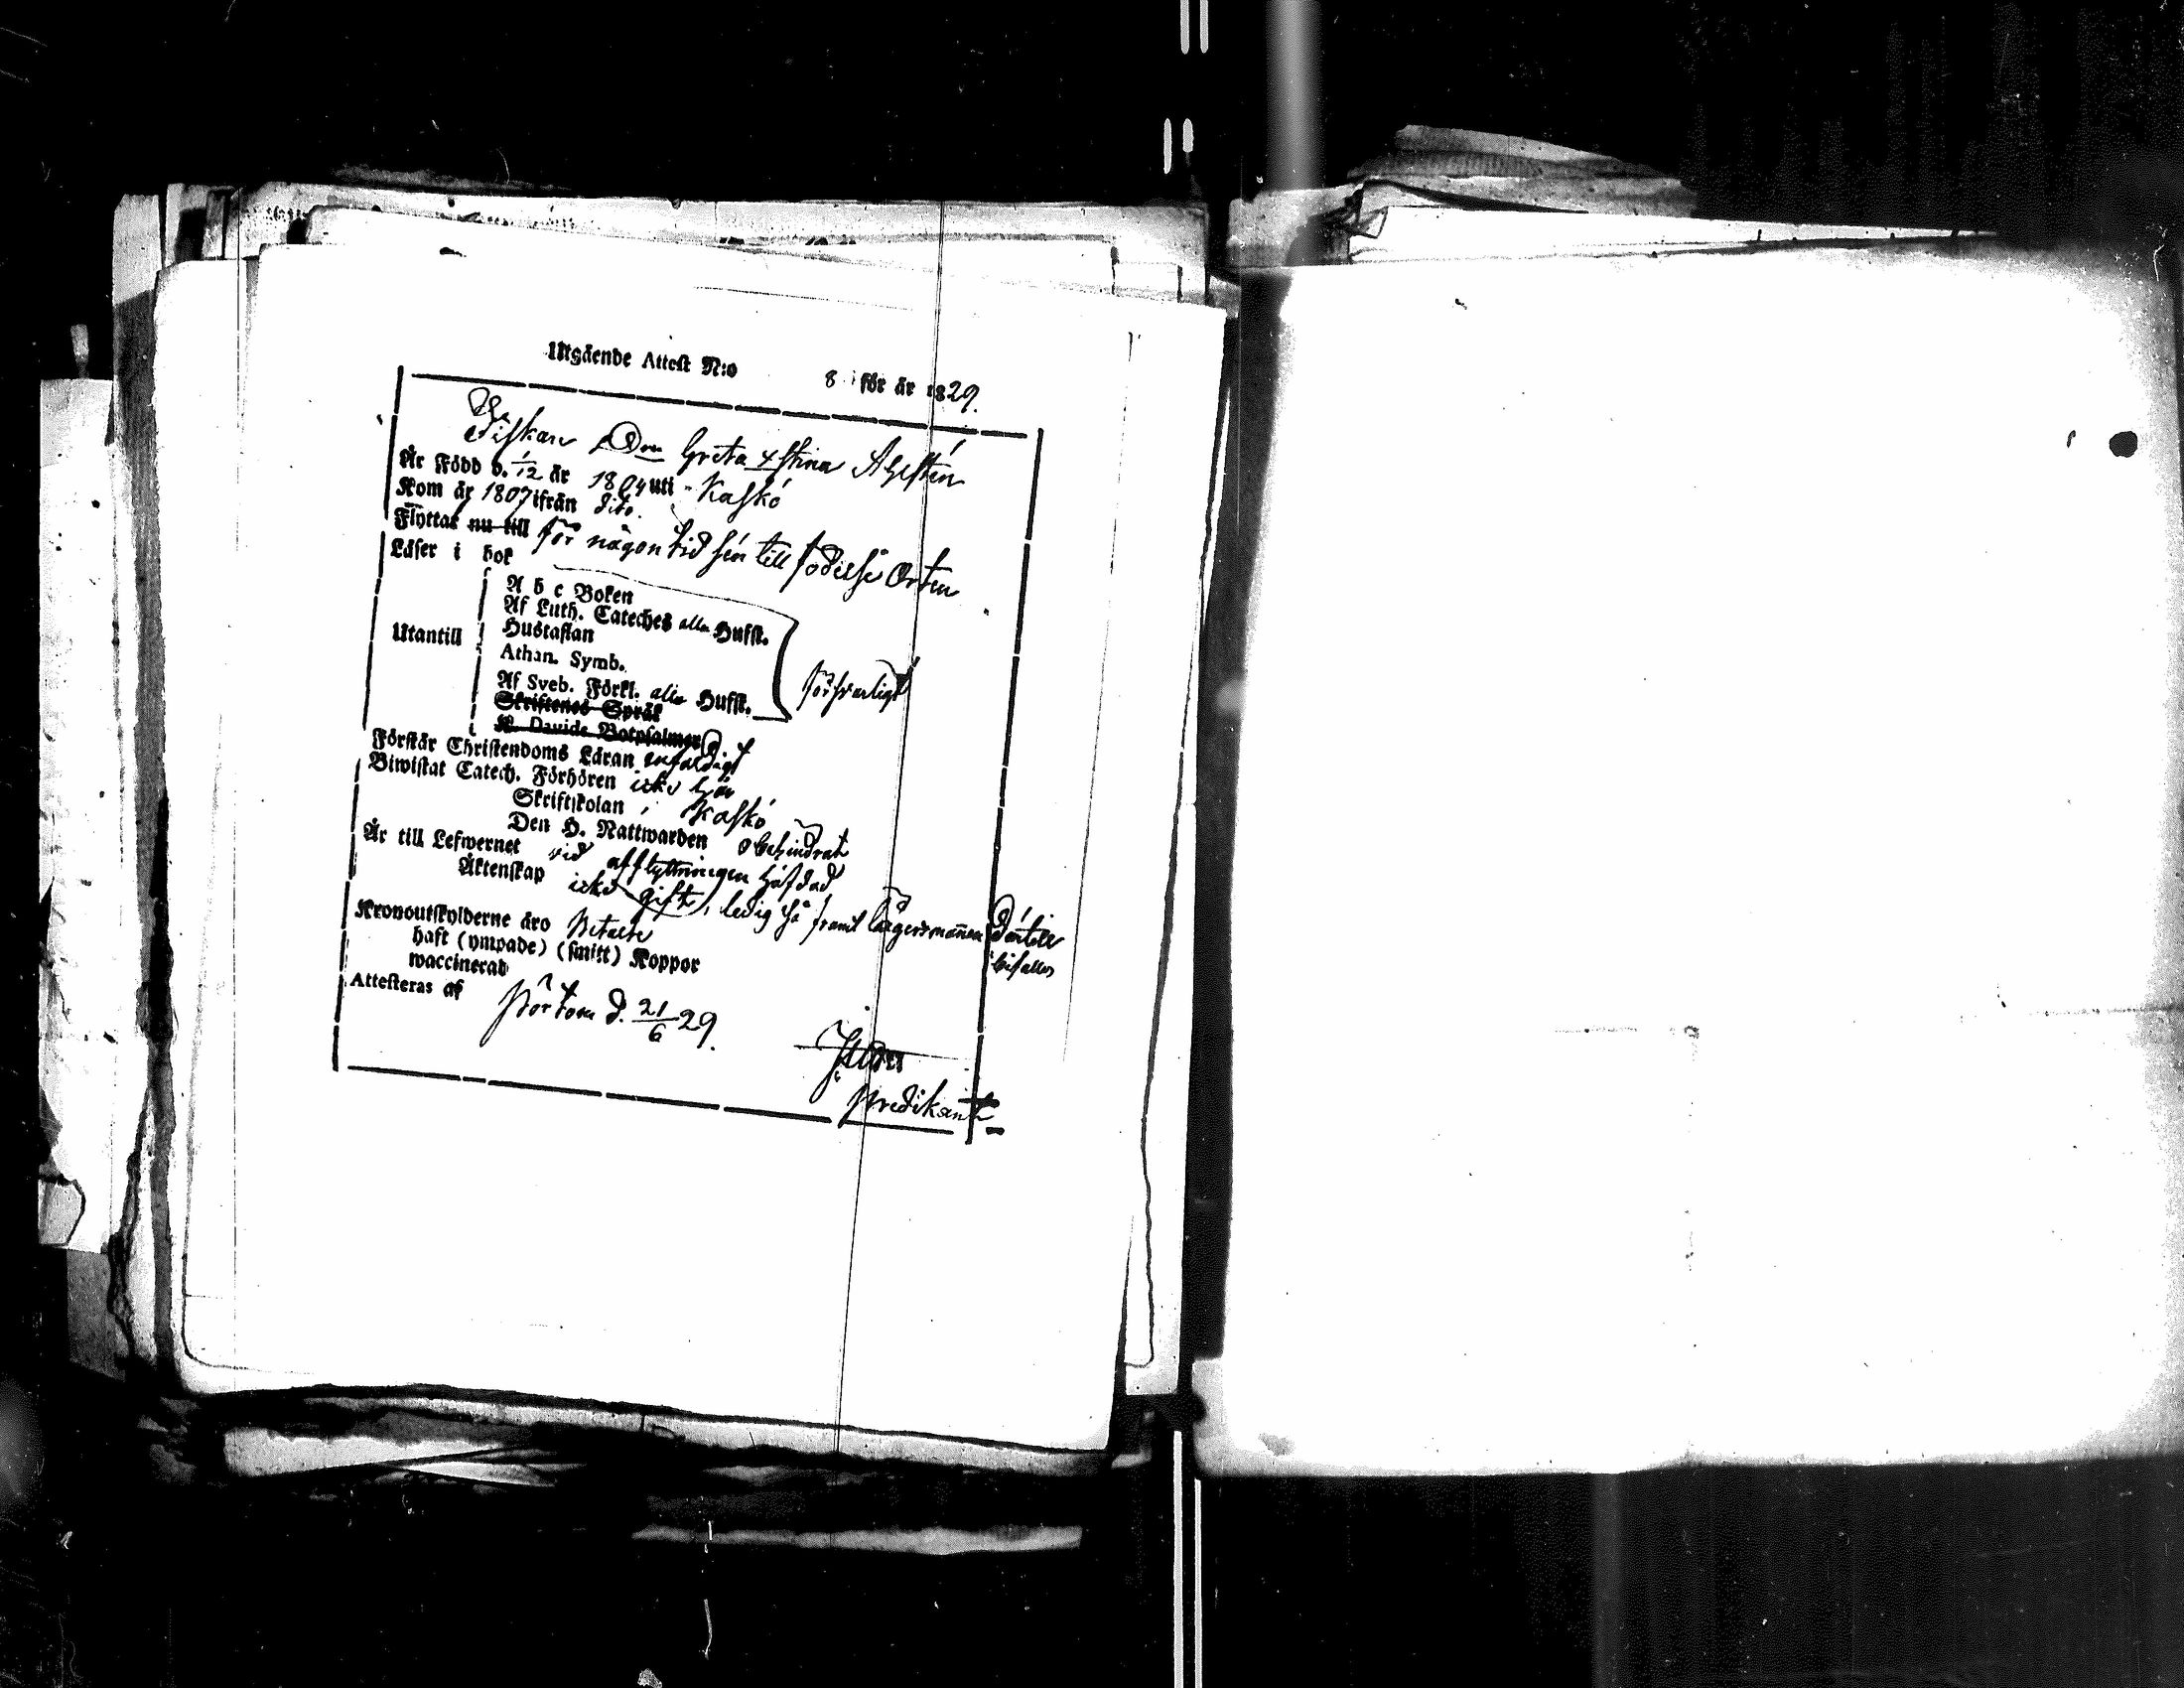 Utgående Attest N:o 8 för år 1829.
Piskan Don Greta Xstina Ahlstén
Är Född d. 1/12 år 1804 uti Kaskö
Kom år 1807 ifrån dito.
Flyttat nu till för någon tid sén till födelse Orten
Läser i bok
Utantill
A b c Boken
Af Luth. Cateches alla Hufst.
Hustaflan
Athan. Symb.
Af Sveb. Förkl. alla Hufst.
försvarligt
Skriftenes Språk
K. Davids Botpsalmer
Förstår Christendoms Läran enfaldigt
Biwistat Catech. Förhören icke här
Skriftskolan i Kaskö
Den H. Nattwarden obehindrat
Är till Lefwernet vid afflyttningen häfdad
Äktenskap icke gift, ledig så framt lägersmannen dertill
bifaller
Kronoutskylderne äro betalte
haft (ympade) (smitt) Koppor
waccinerad
Attesteras af Pörtom d. 21/6 29.
Predikant